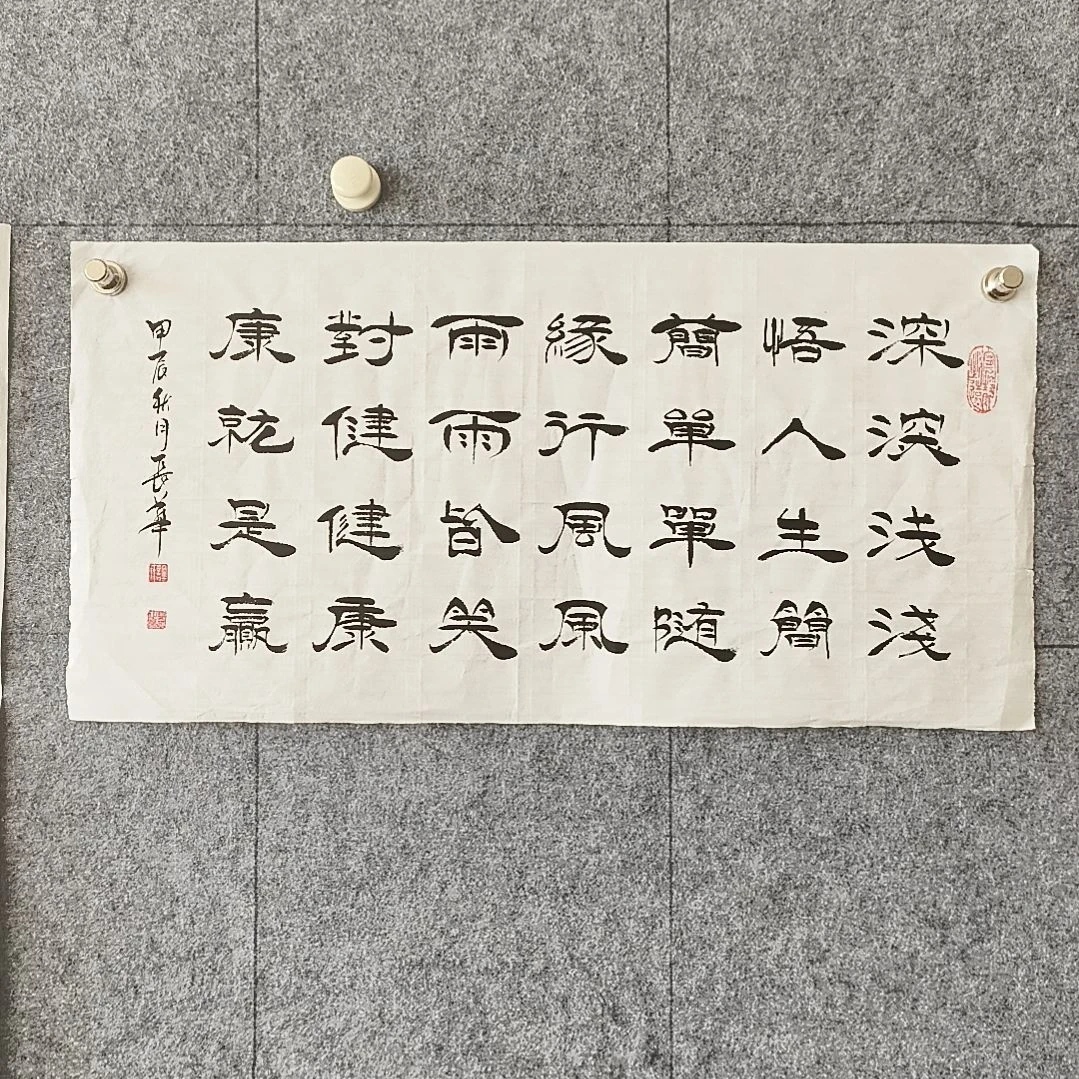 深深浅淺
悟人生簡
簡單單隨
緣行風風
雨雨皆笑
對健健康
康就是贏
甲辰秋月長華